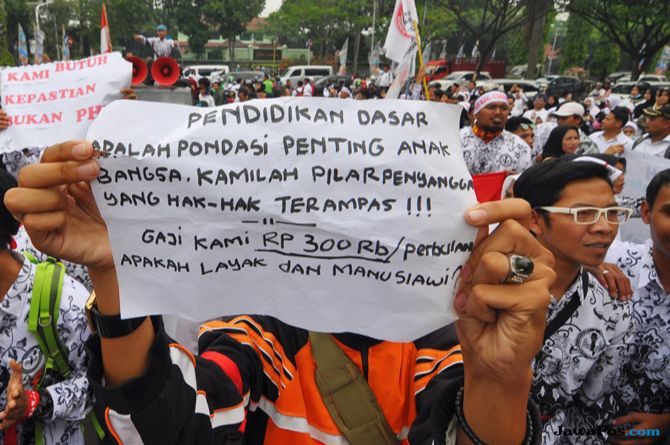 KAMI BUTUH
KEPASTIAN
BUKAN PH
PENDIDIKAN DASAR
APALAH PONDASI PENTING ANAK
BANGSA. KAMILAH PILAR PENYANGGA
YANG HAK-HAK TERAMPAS !!!
GAJI KAMI RP 300 Rb/perbulan
APAKAH LAYAK dan MANUSIAWI
JawaPos.com